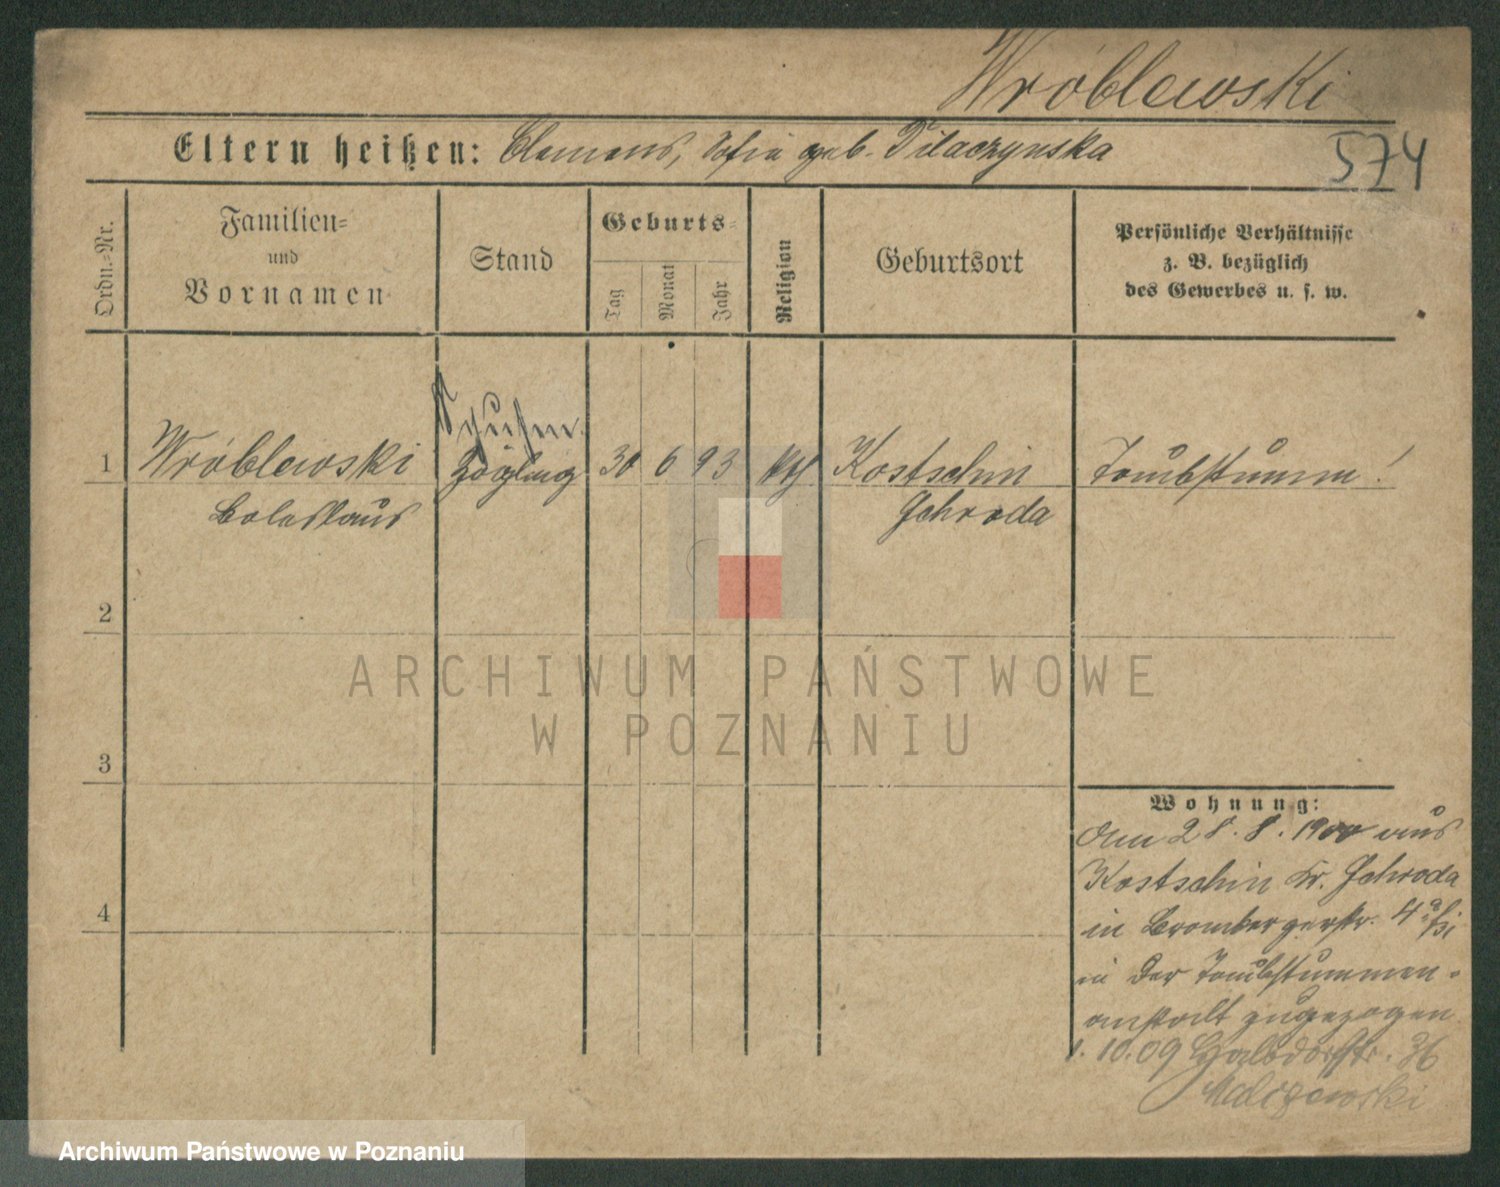 Wróblewski
Eltern heißen: Clemens, Sofia geb. Tilaczynska
574
Ordn.-Nr.
Familien-
und
Vornamen
Stand
Geburts-
Tag
Monat
Jahr
Religion
Geburtsort
Persönliche Verhältnisse
z. B. bezüglich
des Gewerbes u. s. w.
1
Wróblewski
Boleslaus
Zögling
30 6 93 kth
Kostschin
Schroda
Taubstumm!
2
ARCHIWUM PAŃSTWOWE
W POZNANIU
3
4
Wohnung:
Am 28.8.1900 aus
Kostschin Kr. Schroda
in Brombergerstr. 4a
in der Taubstummen-
anstalt zugezogen
1.10.09 Halbdorfstr. 36
Archiwum Państwowe w Poznaniu